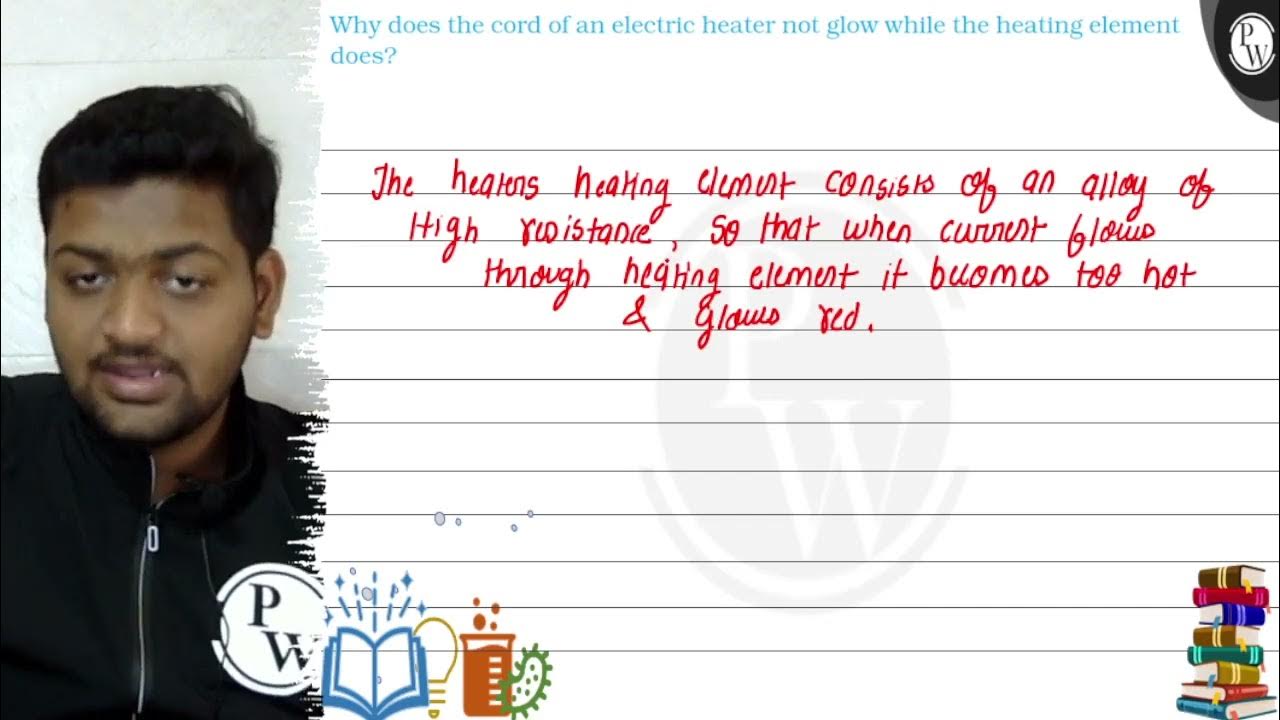 Why does the cord of an electric heater not glow while the heating element
does?
The heaters heating element consists of an alloy of
High resistance, so that when current flows
through heating element it becomes too hot
& glows red.
PW
PW
PW